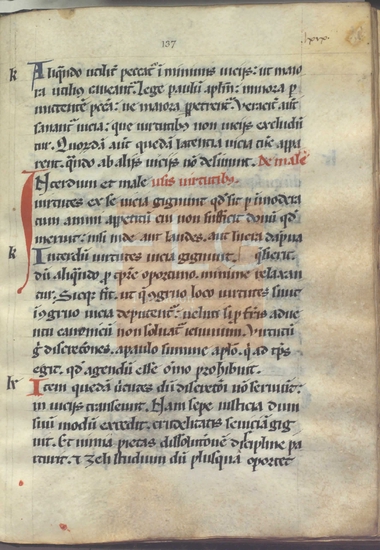 137
lxix.
k Aliqñdo utilit̃ peccat̃ i minimis uiciis: ut maio
ra utiliꝰ caueant̃. Lege paulum apl̃m: minora p
mittente pcc̃a: ne maiora ppetrent̃. Veracit̃ aut̃
sanant̃ uicia: que uirtutibꝰ non uiciis excludũ
tur. Quordã aut̃ quedã latencia uicia tũc appa
rent. qũdo ab aliis uiciis nõ desinunt. De male
INterdum et male usis uirtutibꝰ.
uirtutes ex se uicia gignunt qđ fit p inmodera
tum animi appetitũ cui non sufficit donũ qđ
meruit: nisi inde aut laudes. aut lucra dãpna
k Interdũ uirtutes uicia gignunt. q̃sierit.
dũ aliqñdo p tp̃re oportuno. minime relaxan
tur. Sicq; fit. ut q̃ ꝯgruo loco uirtutes sunt
iꝯgruo uicia deputent̃: ueluti si p fr̃is aduẽ
tu canonicũ non soluat̃ ieiuniũ. Virtutũ
g̃ discreciones. a paulo sumime apl̃o. q̃ ad tp̃s
egit. qđ agendũ esse om̃ino prohibuit.
k Item quedã ũtutes dũ discretiõẽ nõ seruiũt:
in uiciis transeunt. Nam sepe iusticia dum
suũ modũ excedit. crudelitatis seuiciã gig
nit. Et nimia pietas dissolutionẽ discipline pa
turit. ⁊ zeli studium dũ plusquã oportet